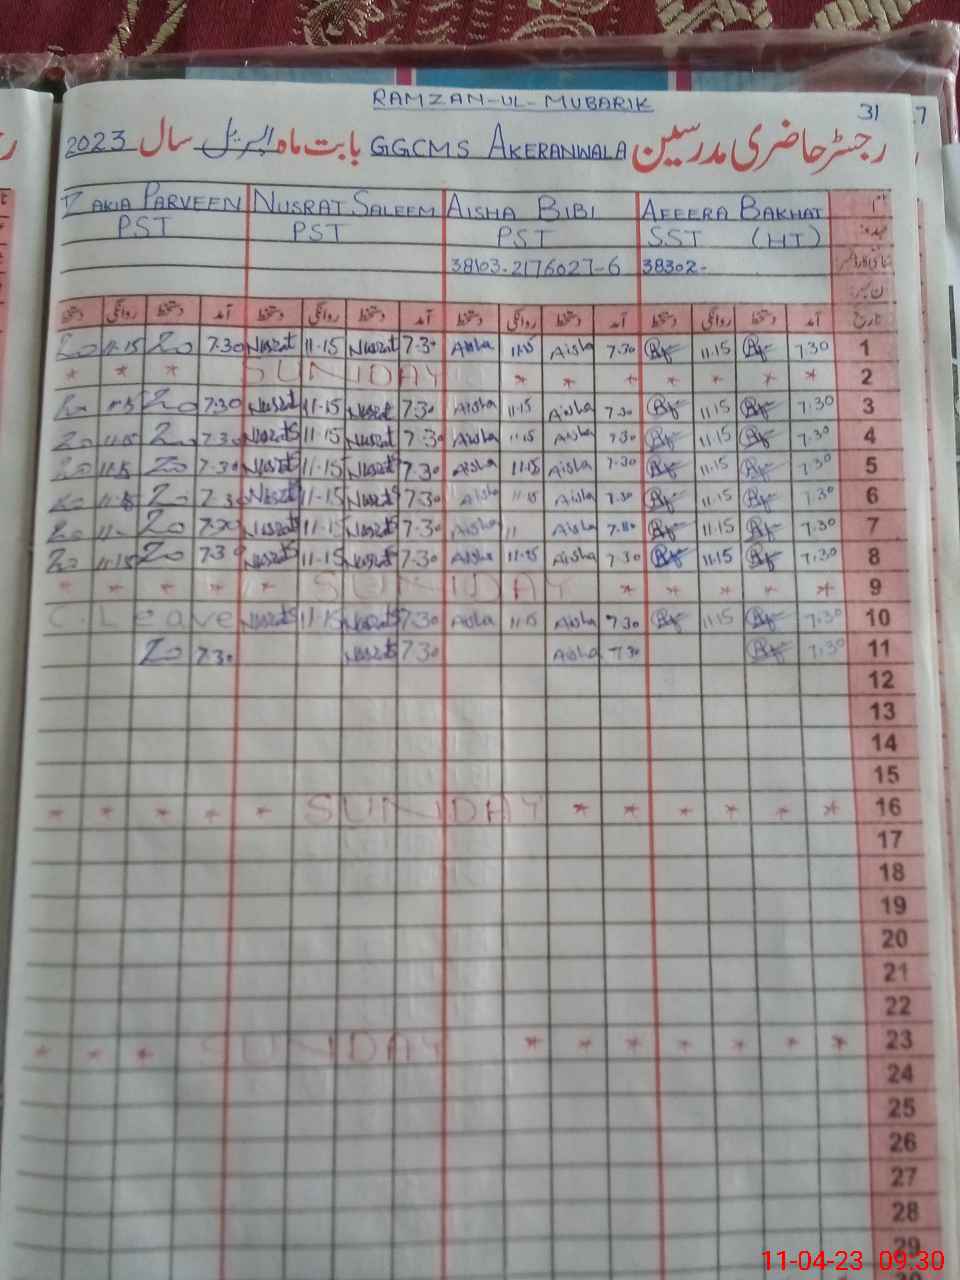 RAMZAN-UL-MUBARIK
31 7
رجسٹر حاضری مدرسین GGCMS AKERANWALA بابت ماہ اپریل سال 2023
نام AFEERA BAKHAT AISHA BIBI NUSRAT SALEEM ZAKIA PARVEEN
عہدہ SST (HT) PST PST PST
شناختی کارڈ نمبر 38302- 38103-2176027-6
تاریخ آمد دستخط روانگی دستخط آمد دستخط روانگی دستخط آمد دستخط روانگی دستخط آمد دستخط روانگی دستخط
Zo 11-15 Zo 7.30 Nusrat 11-15 Nusrat 7.30 Aisha 11.15 Aisha 7.30 11.15 7.30 1
* * * SUNDAY * * * * * * * 2
Zo Zo 7.30 Nusrat 11-15 Nusrat 7.30 Aisha 11.15 Aisha 7.30 11.15 7.30 3
Zo 11.15 Zo 7.30 Nusrat 11-15 Nusrat 7.30 Aisha 11.15 Aisha 7.30 11.15 7.30 4
Zo 11.15 Zo 7.30 Nusrat 11-15 Nusrat 7.30 Aisha 11.15 Aisha 7.30 11.15 7.30 5
Zo 11-15 Zo 7.30 Nusrat 11-15 Nusrat 7.30 Aisha 11.15 Aisha 7.30 11.15 7.30 6
Zo Zo 7.30 Nusrat 11-15 Nusrat 7.30 Aisha Aisha 11.15 7.30 7
Zo 11.15 Zo 7.30 Nusrat 11-15 Nusrat 7.30 Aisha 11.15 Aisha 7.30 11.15 7.30 8
* * * * * SUNDAY * * * * * 9
C. Leave Nusrat 11-15 Nusrat 7.30 Aisha 11.15 Aisha 7.30 11.15 7.30 10
Zo 7.30 Nusrat 7.30 Aisha 7.30 7.30 11
12
13
14
15
* * * * * SUNDAY * * * * * * 16
17
18
19
20
21
22
* * * SUNDAY * * * * * * * 23
24
25
26
27
28
29
11-04-23 09:30